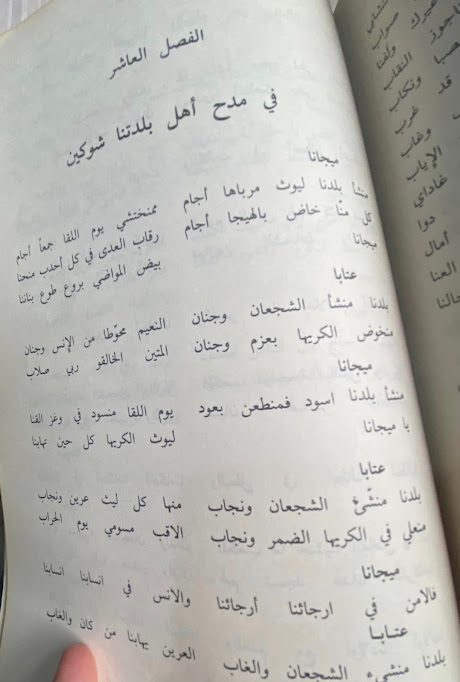 الفصل العاشر
في مدح أهل بلدتنا شوكين
ميجانا
منشأ بلدنا ليوث مرباها أجام ممنختشي يوم اللقا جمعاً أجام
كل منّا خاض بالهيجا أجام رقاب العدى في كل أحدب منحنا
ميجانا بيض المواضي بروع طوع بناننا
عتابا
بلدنا منشأ الشجعان وجنان النعيم محوّطا من الإنس وجنان
منخوض الكريها بعزم وجنان المتين الخالقو ربي صلاب
ميجانا
منشأ بلدنا اسود فمنطعن بعود يوم اللقا منسود في وغز القنا
يا ميجانا ليوث الكريها كل حين تهابنا
عتابا
بلدنا منشّئ الشجعان ونجاب منها كل ليث عرين ونجاب
منعلي في الكريها الضمر ونجاب الاقب مسومي يوم الحراب
ميجانا
فالامن في ارجائنا أرجائنا والانس في انسابنا انسابنا
عتابا
بلدنا منشيء الشجعان والغاب العرين يهابنا من كان والغاب
عبرك
صواب
ولفنا
النقاب
ونكاب
قد
غرب
وغاب
الإياب
غاداي
دوا
أمال
العنا